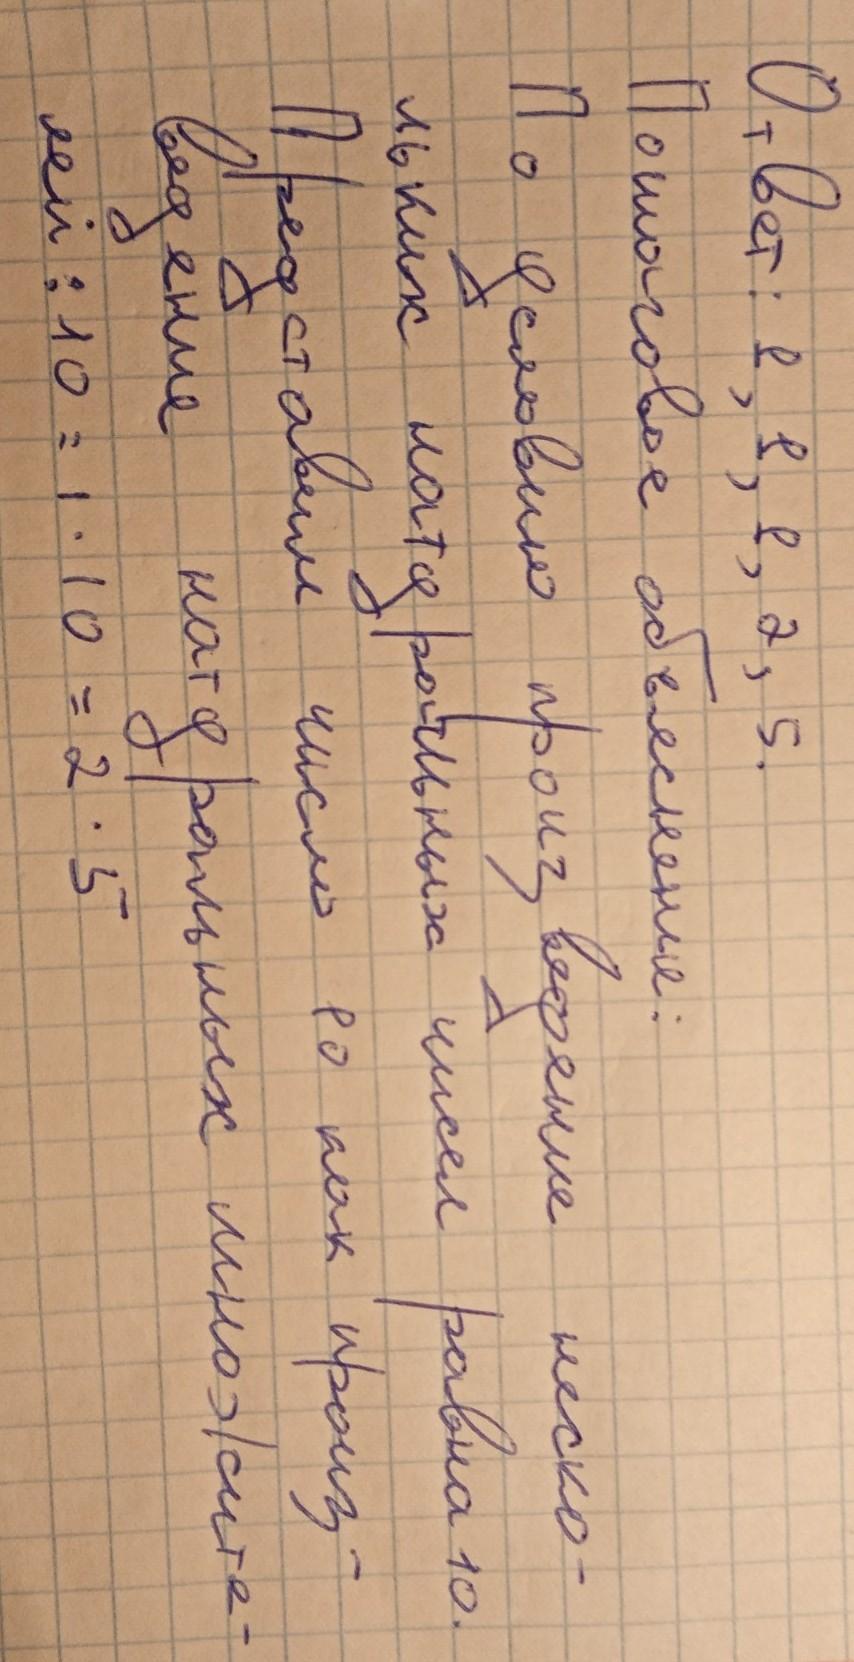 Ответ: 1, 1, 1, 2, 5.
Пошаговое объяснение:
По условию произведение неско-
льких натуральных чисел равна 10.
Представим число 10 как произ-
ведение натуральных множите-
лей: 10 = 1 · 10 = 2 · 5